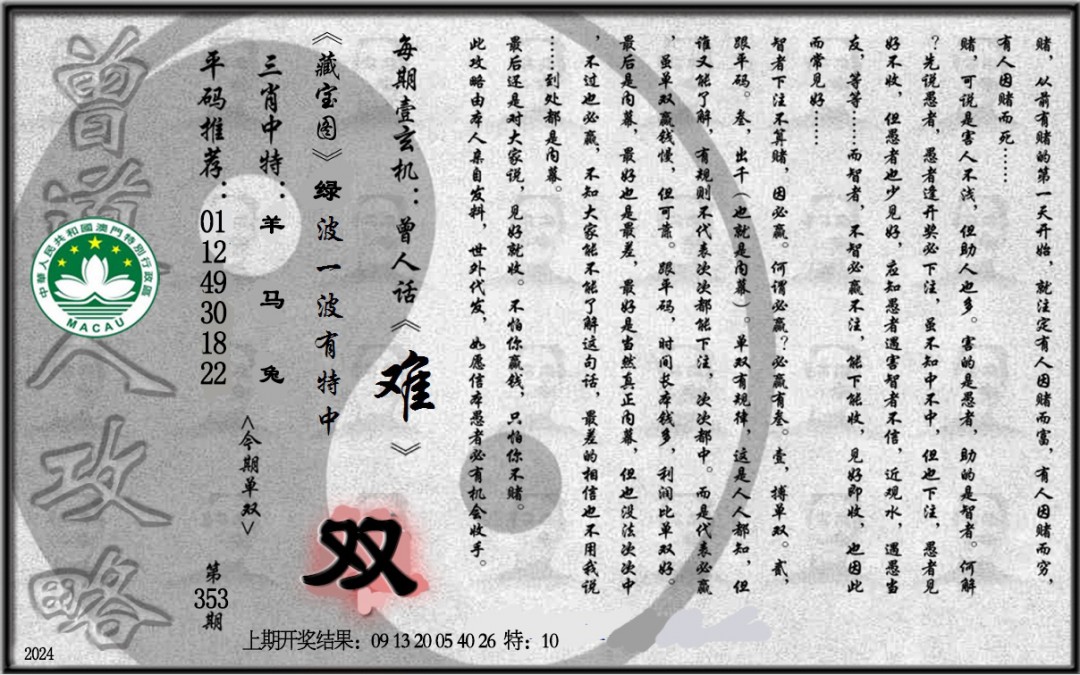 赌，从前有赌的第一天开始，就注定有人因赌而富，有人因赌而穷，
有人因赌而死……
赌，可说是害人不浅，但助人也多。害的是愚者，助的是智者。何解
？先说愚者，愚者逢开奖必下注，虽不知中不中，但也下注，愚者见
好不收，但愚者也少见好，应知愚者遇害智者不信，近观水，遇愚当
友，等等……而智者，不智必赢不注，能下能收，见好即收，也因此
而常见好……
智者下注不算赌，因必赢。何谓必赢？必赢有叁。壹，搏单双。贰，
跟平码。叁，出千（也就是内幕）。单双有规律，这是人人都知，但
谁又能了解，有规则不代表次次都能下注，次次都中。而是代表必赢
，虽单双赢钱慢，但可靠。跟平码，时间长本钱多，利润比单双好。
最后是内幕，最好也是最差，最好是当然真正内幕，但也没法次次中
，不过也必赢，不知大家能不能了解这句话，最差的相信也不用我说
……到处都是内幕。
最后还是对大家说，见好就收。不怕你赢钱，只怕你不赌。
此攻略由本人亲自发料，世外代发，如愿信本愚者必有机会收手。
每期壹玄机：曾人话《难》
《藏宝图》绿波一波有特中
三肖中特：羊 马 兔
平码推荐：01 12 49 30 18 22
<今期单双>
双
第353期
曾道人攻略
中華人民共和國澳門特別行政區
MACAU
上期开奖结果：09 13 20 05 40 26 特：10
2024